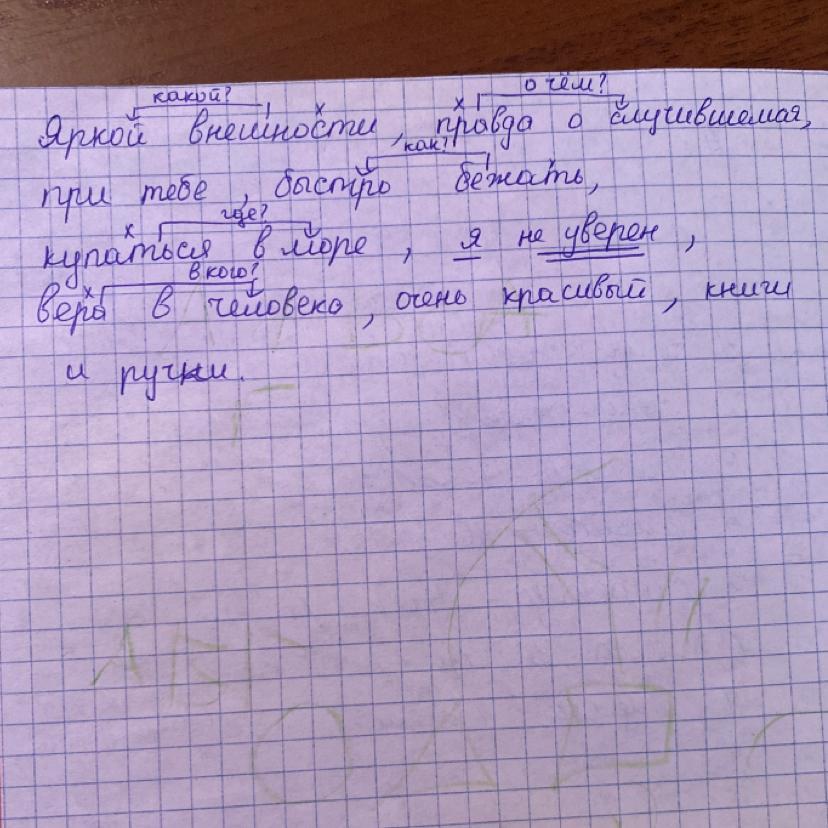 какой? о чём?
Яркой внешности, правда о случившемся,
как?
при тебе, быстро бежать,
где?
купаться в море, я не уверен,
в кого?
вера в человека, очень красивый, книги
и ручки.